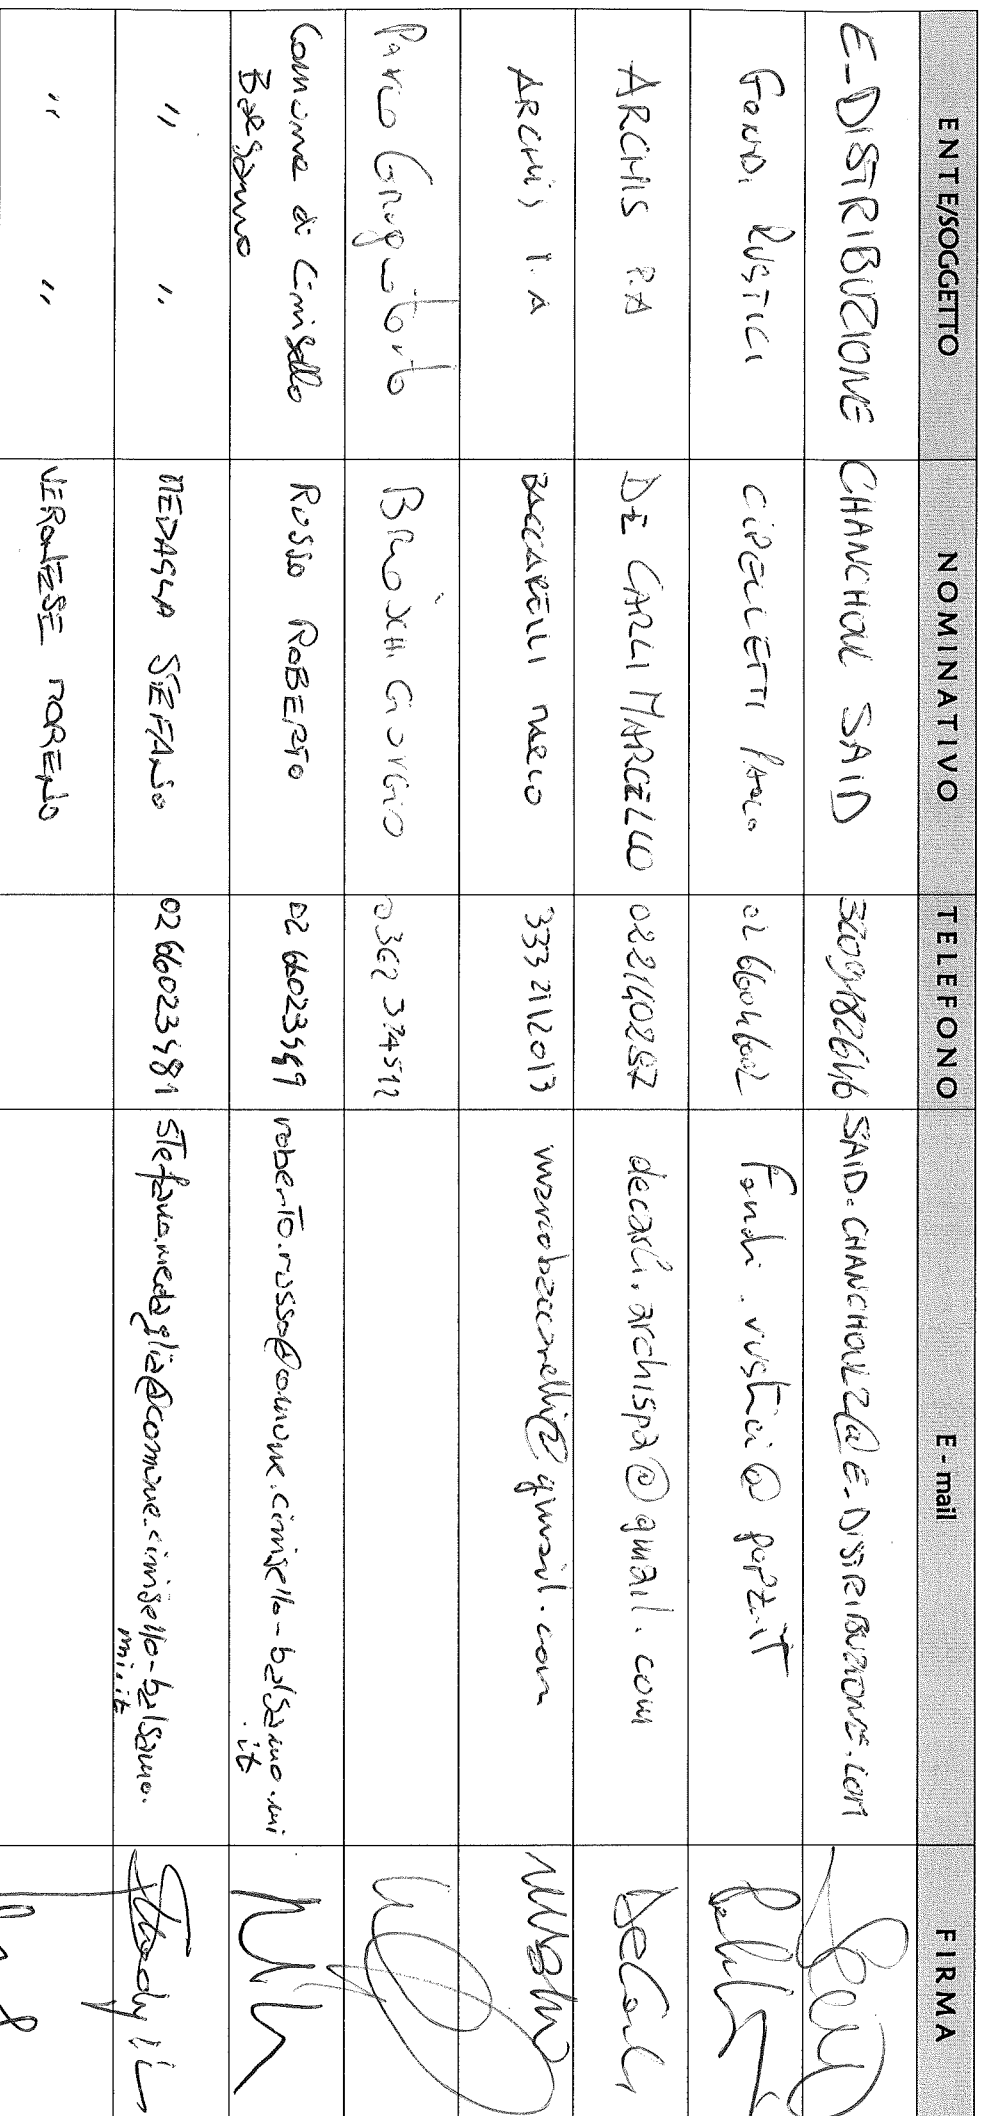 ENTE/SOGGETTO NOMINATIVO TELEFONO E - mail FIRMA
E-DISTRIBUZIONE CHANCHOUL SAID 3209182646 SAID.CHANCHOUL2@E-DISTRIBUZIONE.COM
FONDI RUSTICI CIPELLETTI PAOLO 02 66041602 fondi.rustici@ parz.it
ARCHIS P.A DE CARLI MARCELLO 0221402 decarli.archispa@gmail.com
ARCHIS P.A BACCARELLI MARCO 333 2112013 marcobaccarelli@gmail.com
Parco Grugnotorto GIORGIO 0362 374512
Comune di Cinisello RUSSO ROBERTO 02 66023449 roberto.russo@comune.cinisello-balsamo.mi
Balsamo .it
" " MEDAGLIA STEFANO 02 66023481 stefano.medaglia@comune.cinisello-balsamo.
mi.it
" " VERONESE MORENO